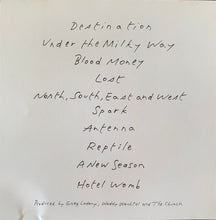 Destination
Under the Milky Way
Blood Money
Lost
North, South, East and West
Spark
Antenna
Reptile
A New Season
Hotel Womb
Produced by Greg Ladanyi, Waddy Wachtel and The Church